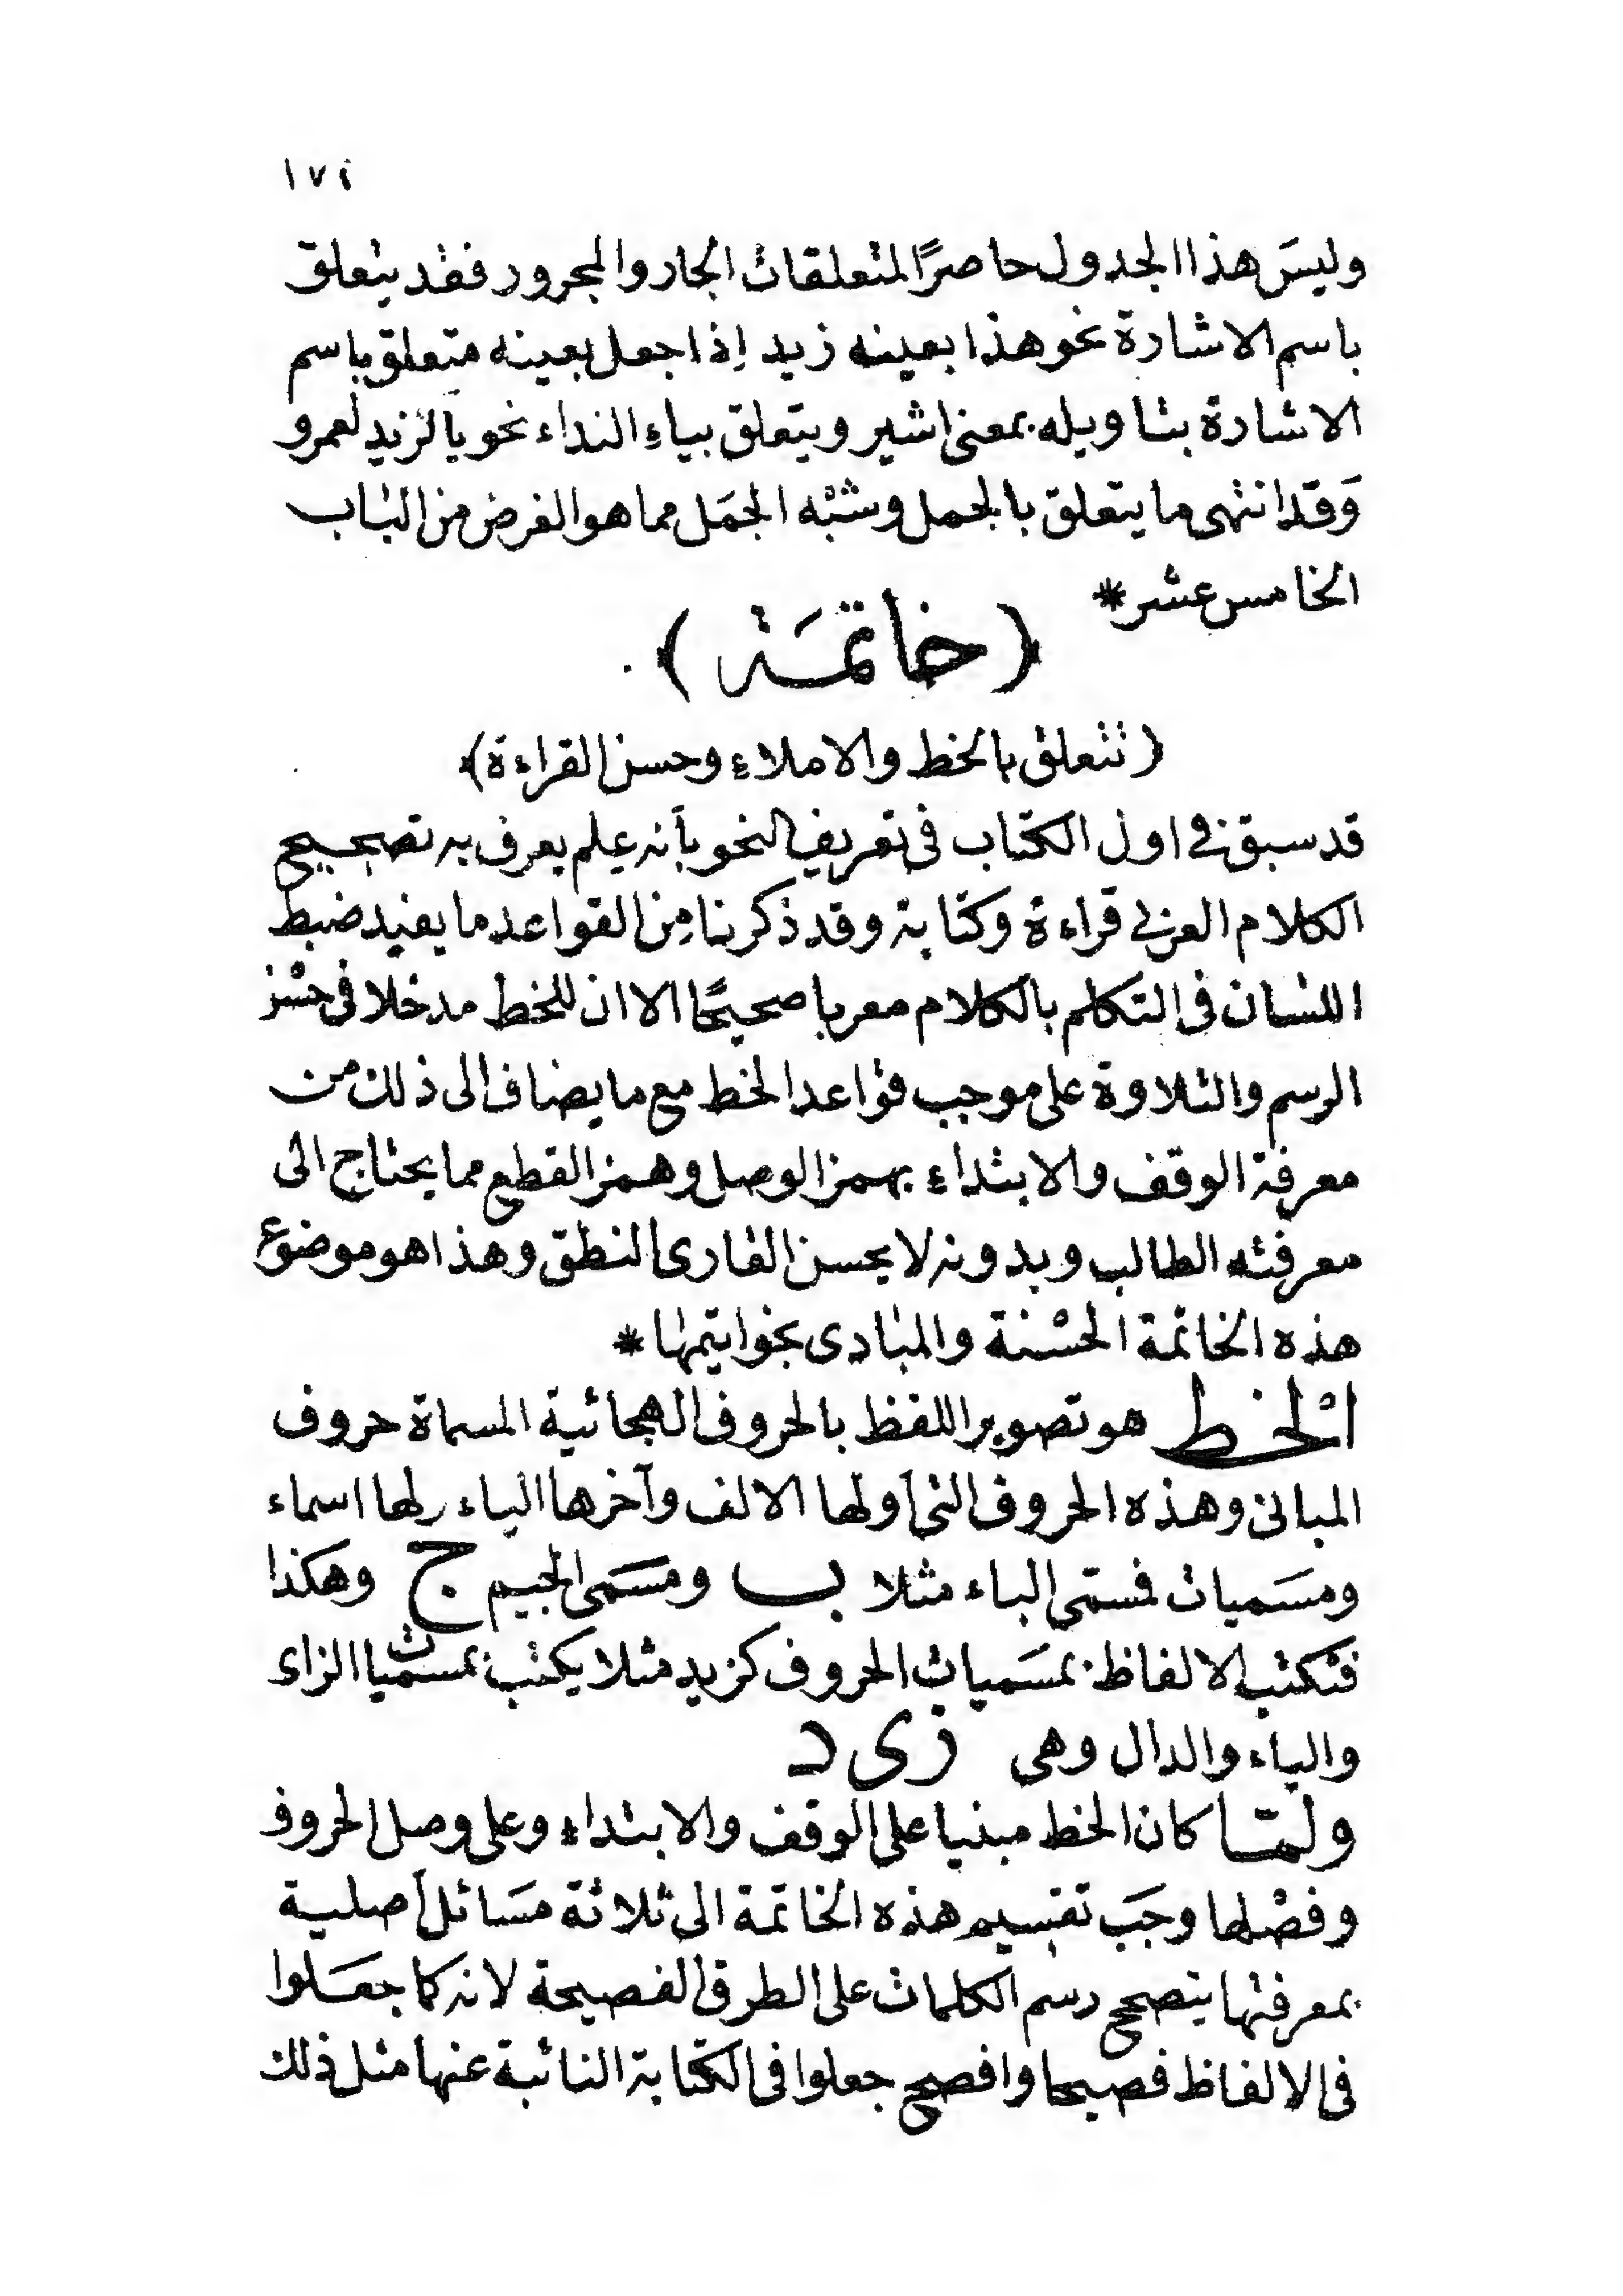 ١٧٤
وليسَ هذا الجدول حاصرًا لمتعلقات الجار والمجرور فقد يتعلق
باسم الاشارة نحو هذا بعينه زيد اِذا جعل بعينه متعلق باسم
الاشارة بتاويله بمعنى اشير ويتعلق بياءِ النداء نحو يالزيد لعمرو
وَقد انتهى ما يتعلق بالجمل وشبْه الجمَل مما هو الغرض من الباب
الخامس عشر *
(خاتمَة)
(تتعلق بالخط والاملاءِ وحسن القراءة)
قد سبق في اول الكتاب في تعريف النحو بأنه علم يعرف به تصحيح
الكلام العربي قراءة وكتابة وقد ذكرنا مِن القواعد ما يفيد ضبط
اللسان في التكلم بالكلام معربا صحيحًا الا ان للخط مدخلا في حسْن
الرسم والتلاوة على موجب قواعد الخط مع ما يضاف الى ذلك من
معرفة الوقف والابتداءِ بهمز الوصل وهمز القطع مما يحتاج الى
معرفته الطالب وبدونه لا يحسن القارى النطق وهذا هو موضوع
هذه الخاتمة الحسْنة والمبادى بخواتيمها *
الخط هو تصوير اللفظ بالحروف الهجائية المسماة حروف
المبانى وهذه الحروف التى أولها الالف وآخرها الياء ولها اسماء
ومسَميات فمسمى الباء مثلا ب ومسَمى الجيم ج وهكذا
فتكتب الالفاظ بمسَميات الحروف كزيد مثلا يكتب بمسميات الزاى
والياء والدال وهى ز ى د
ولمّا كان الخط مبنيا على الوقف والابتداءِ وعلى وصل الحروف
وفصْلها وجَب تقسيم هذه الخاتمة الى ثلاثة مسَائل أصلية
بمعرفتها يتصحح رسم الكلمات على الطرق الفصيحة لانه كما جعَلوا
في الالفاظ فصيحا وافصح جعلوا في الكتابة النائبة عنها مثل ذلك